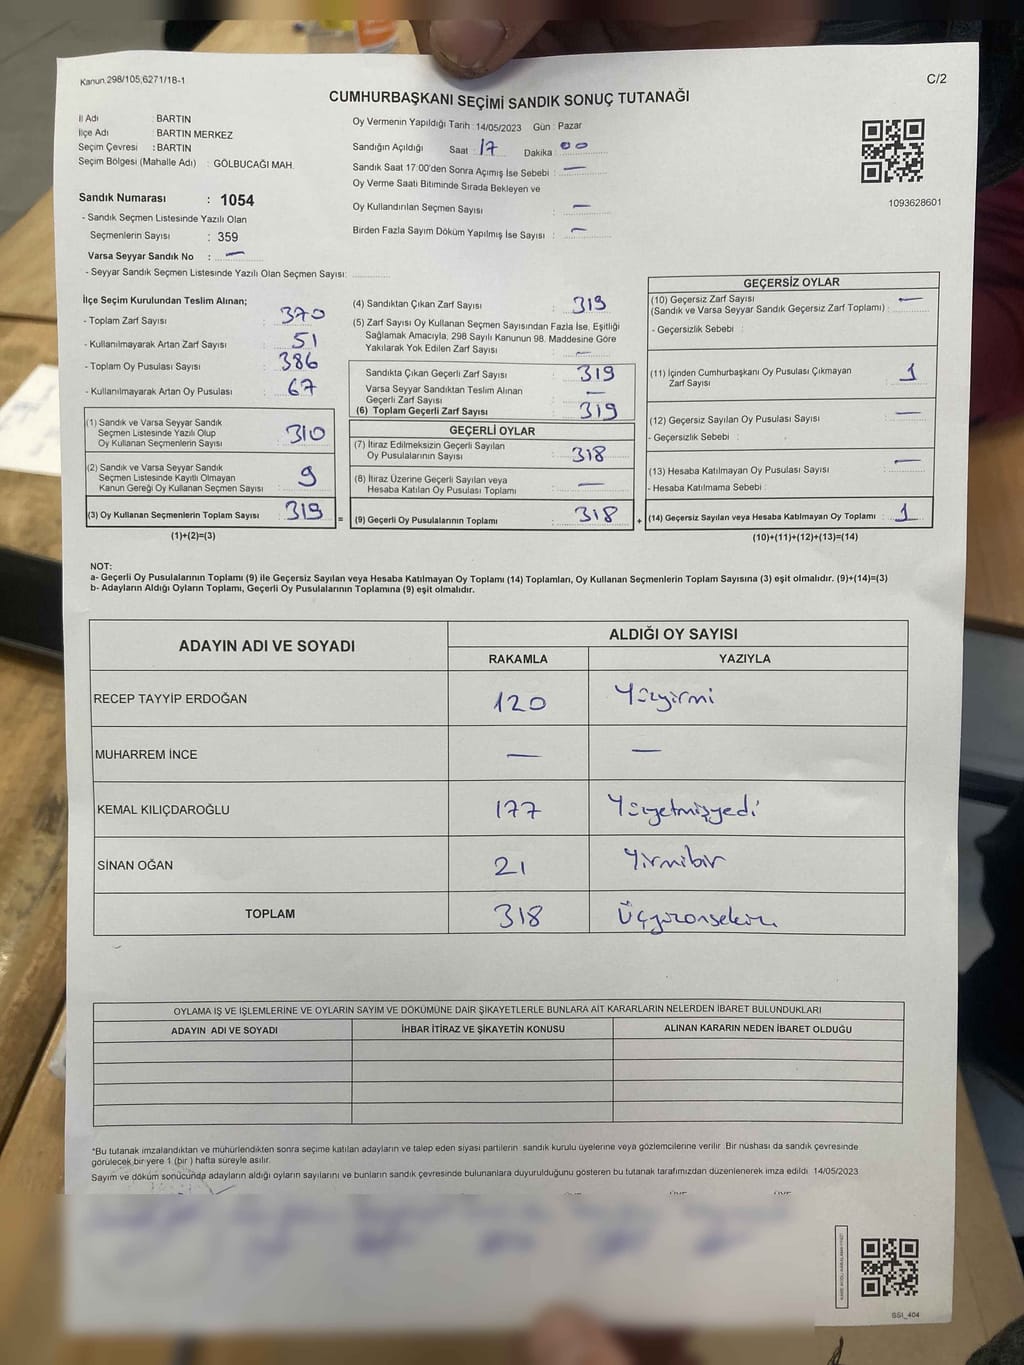 Kanun.298/105,6271/18-1
C/2
CUMHURBAŞKANI SEÇİMİ SANDIK SONUÇ TUTANAĞI
İl Adı : BARTIN
İlçe Adı : BARTIN MERKEZ
Seçim Çevresi : BARTIN
Seçim Bölgesi (Mahalle Adı) : GÖLBUCAĞI MAH.
Sandık Numarası : 1054
- Sandık Seçmen Listesinde Yazılı Olan
Seçmenlerin Sayısı : 359
Varsa Seyyar Sandık No : —
- Seyyar Sandık Seçmen Listesinde Yazılı Olan Seçmen Sayısı:
Oy Vermenin Yapıldığı Tarih : 14/05/2023 Gün : Pazar
Sandığın Açıldığı Saat : 17 Dakika : 00
Sandık Saat 17:00'den Sonra Açımış İse Sebebi : —
Oy Verme Saati Bitiminde Sırada Bekleyen ve
Oy Kullandırılan Seçmen Sayısı : —
Birden Fazla Sayım Döküm Yapılmış İse Sayısı : —
1093628601
İlçe Seçim Kurulundan Teslim Alınan;
- Toplam Zarf Sayısı : 370
- Kullanılmayarak Artan Zarf Sayısı : 51
- Toplam Oy Pusulası Sayısı : 386
- Kullanılmayarak Artan Oy Pusulası : 67
(1) Sandık ve Varsa Seyyar Sandık
Seçmen Listesinde Yazılı Olup
Oy Kullanan Seçmenlerin Sayısı : 310
(2) Sandık ve Varsa Seyyar Sandık
Seçmen Listesinde Kayıtlı Olmayan
Kanun Gereği Oy Kullanan Seçmen Sayısı : 9
(3) Oy Kullanan Seçmenlerin Toplam Sayısı : 319 =
(1)+(2)=(3)
(4) Sandıktan Çıkan Zarf Sayısı : 319
(5) Zarf Sayısı Oy Kullanan Seçmen Sayısından Fazla İse, Eşitliği
Sağlamak Amacıyla, 298 Sayılı Kanunun 98. Maddesine Göre
Yakılarak Yok Edilen Zarf Sayısı : —
Sandıkta Çıkan Geçerli Zarf Sayısı : 319
Varsa Seyyar Sandıktan Teslim Alınan
Geçerli Zarf Sayısı : —
(6) Toplam Geçerli Zarf Sayısı : 319
GEÇERLİ OYLAR
(7) İtiraz Edilmeksizin Geçerli Sayılan
Oy Pusulalarının Sayısı : 318
(8) İtiraz Üzerine Geçerli Sayılan veya
Hesaba Katılan Oy Pusulası Toplamı : —
(9) Geçerli Oy Pusulalarının Toplamı : 318 +
GEÇERSİZ OYLAR
(10) Geçersiz Zarf Sayısı
(Sandık ve Varsa Seyyar Sandık Geçersiz Zarf Toplamı) : —
- Geçersizlik Sebebi :
(11) İçinden Cumhurbaşkanı Oy Pusulası Çıkmayan
Zarf Sayısı : 1
(12) Geçersiz Sayılan Oy Pusulası Sayısı : —
- Geçersizlik Sebebi :
(13) Hesaba Katılmayan Oy Pusulası Sayısı : —
- Hesaba Katılmama Sebebi :
(14) Geçersiz Sayılan veya Hesaba Katılmayan Oy Toplamı : 1
(10)+(11)+(12)+(13)=(14)
NOT:
a- Geçerli Oy Pusulalarının Toplamı (9) ile Geçersiz Sayılan veya Hesaba Katılmayan Oy Toplamı (14) Toplamları, Oy Kullanan Seçmenlerin Toplam Sayısına (3) eşit olmalıdır. (9)+(14)=(3)
b- Adayların Aldığı Oyların Toplamı, Geçerli Oy Pusulalarının Toplamına (9) eşit olmalıdır.
ADAYIN ADI VE SOYADI ALDIĞI OY SAYISI
RAKAMLA YAZIYLA
RECEP TAYYİP ERDOĞAN 120 Yüzyirmi
MUHARREM İNCE — —
KEMAL KILIÇDAROĞLU 177 Yüzyetmişyedi
SİNAN OĞAN 21 Yirmibir
TOPLAM 318 Üçyüzonsekiz
OYLAMA İŞ VE İŞLEMLERİNE VE OYLARIN SAYIM VE DÖKÜMÜNE DAİR ŞİKAYETLERLE BUNLARA AİT KARARLARIN NELERDEN İBARET BULUNDUKLARI
ADAYIN ADI VE SOYADI İHBAR İTİRAZ VE ŞİKAYETİN KONUSU ALINAN KARARIN NEDEN İBARET OLDUĞU
*Bu tutanak imzalandıktan ve mühürlendikten sonra seçime katılan adayların ve talep eden siyasi partilerin sandık kurulu üyelerine veya gözlemcilerine verilir. Bir nüshası da sandık çevresinde
görülecek bir yere 1 (bir ) hafta süreyle asılır.
Sayım ve döküm sonucunda adayların aldığı oyların sayılarını ve bunların sandık çevresinde bulunanlara duyurulduğunu gösteren bu tutanak tarafımızdan düzenlenerek imza edildi 14/05/2023
SSI_404